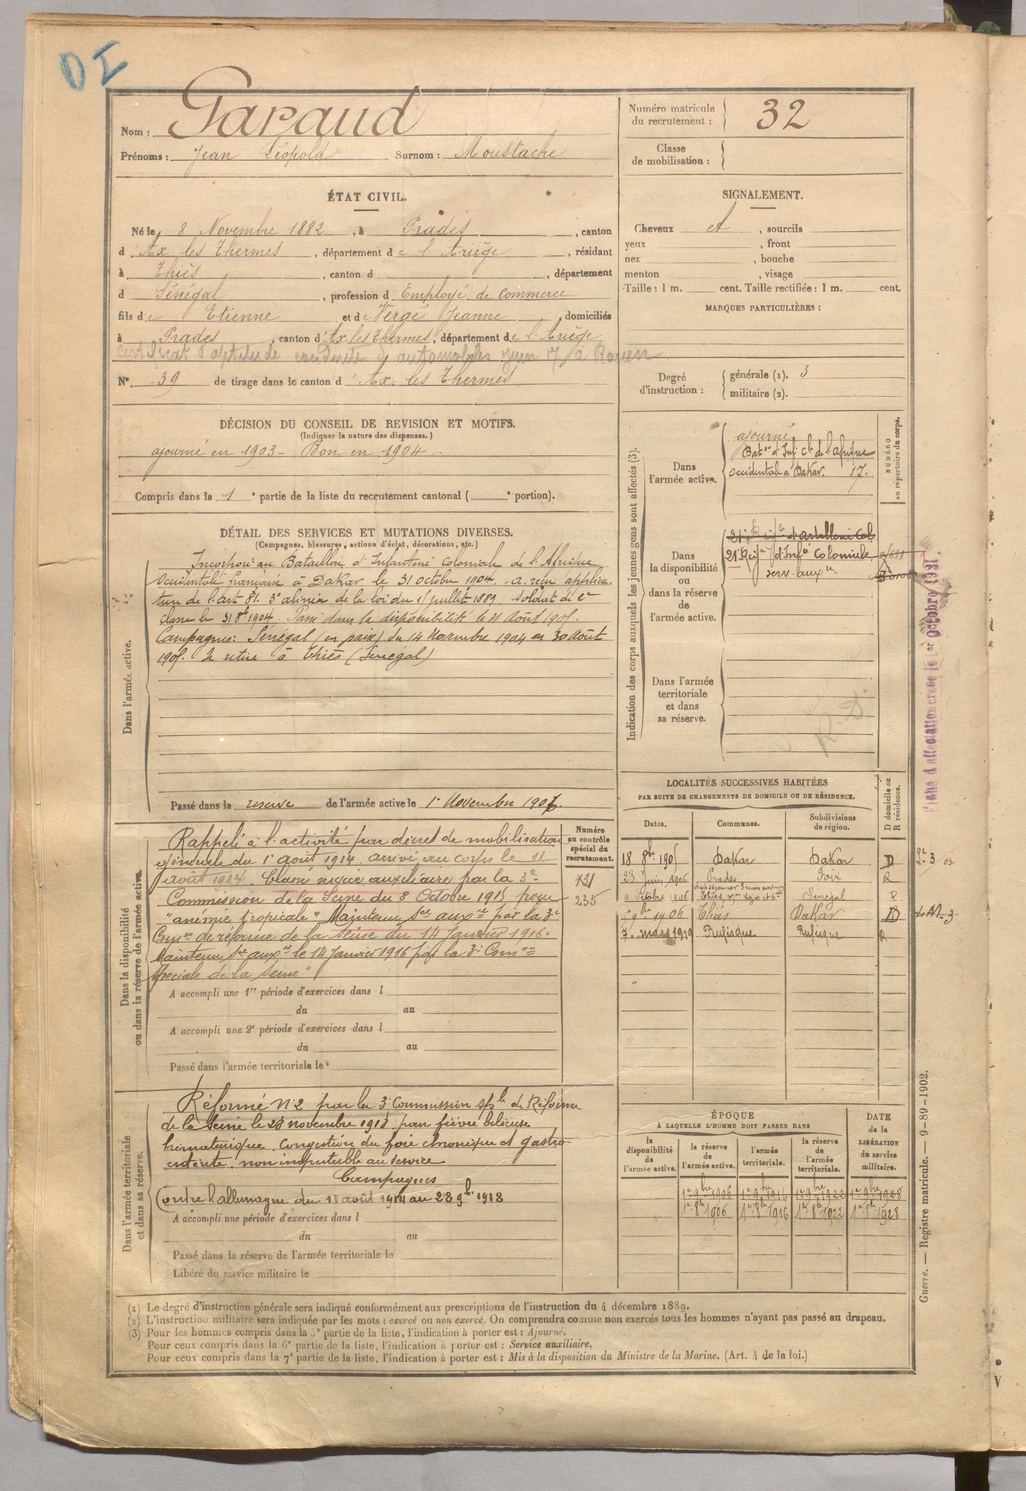 DI
Nom : Garaud
Prénoms : Jean Léopold Surnom : Moustache
Numéro matricule du recrutement : 32
Classe de mobilisation :
ÉTAT CIVIL.
Né le 8 Novembre 1882, à Prades, canton
d'Ax les Thermes, département de l'Ariège, résidant
à Thiès, canton d , département
d Sénégal, profession d'Employé de Commerce
fils de Etienne et de Vergé Jeanne, domiciliés
à Prades, canton d'Ax les Thermes, département de l'Ariège
certificat d'aptitude conduite automobiles juin 17 à Rouen
N° 39 de tirage dans le canton d'Ax les Thermes
SIGNALEMENT.
Cheveux , sourcils
yeux , front
nez , bouche
menton , visage
Taille : 1 m. cent. Taille rectifiée : 1 m. cent.
MARQUES PARTICULIÈRES :
Degré d'instruction : générale (1). 3
militaire (2).
DÉCISION DU CONSEIL DE REVISION ET MOTIFS.
(Indiquer la nature des dispenses.)
ajourné en 1903 - Bon en 1904
Compris dans la 1e partie de la liste du recrutement cantonal ( e portion).
DÉTAIL DES SERVICES ET MUTATIONS DIVERSES.
(Campagnes, blessures, actions d'éclat, décorations, etc.)
Dans l'armée active.
Incorporé au Bataillon d'Infanterie Coloniale de l'Afrique
Occidentale française à Dakar le 31 octobre 1904. a reçu applica-
tion de l'art 81. 3e alinéa de la loi du 15 juillet 1889. Soldat de 2e
classe le 31 8bre 1904. Passé dans la disponibilité le Août 1905.
Campagnes : Sénégal (en paix) du 14 Novembre 1904 au 30 Août
1905. Se retire à Thiès (Sénégal)
Passé dans la réserve de l'armée active le 1er Novembre 1906.
Indication des corps auxquels les jeunes gens sont affectés (3).
Dans l'armée active.
ajourné
Baton d'Infie Cle de l'Afrique
occidentale à Dakar. 17.
NUMÉRO au répertoire du corps.
Dans la disponibilité ou dans la réserve de l'armée active.
21e Regt d'Infie Coloniale
serv. auxre
Dans l'armée territoriale et dans sa réserve.
Fiche d'affectation créée le 1er Octobre 1931.
Dans la disponibilité ou dans la réserve de l'armée active.
Numéro au contrôle spécial du recrutement.
131
235
Rappelé à l'activité par décret de mobilisation
générale du 1er août 1914. arrivé au corps le 11
août 1914. Classé service auxiliaire par la 3e
Commission de la Seine du 8 Octobre 1915 pour
"anémie tropicale" Maintenu Sce auxre par la 3e
Comon de réforme de la Seine du 14 Janvier 1916.
Maintenu Sce auxre le 14 Janvier 1916 par la 3e Comon
Spéciale de la Seine"
A accompli une 1re période d'exercices dans l
du au
A accompli une 2e période d'exercices dans l
du au
Passé dans l'armée territoriale le
LOCALITÉS SUCCESSIVES HABITÉES
PAR SUITE DE CHANGEMENTS DE DOMICILE OU DE RÉSIDENCE.
Dates. Communes. Subdivisions de région. D domicile ou R résidence.
18 8bre 1905 Dakar Dakar D
23 Juin 1906 Prades Foix R
Octobre 1906 Thiès Sénégal R
1906 Thiès Dakar D
7 mars 1919 Rufisque Rufisque R
Dans l'armée territoriale et dans sa réserve.
Réformé N°2 par la 3e Commission sple de Réforme
de la Seine le 23 novembre 1918 pour fièvre bilieuse
hématurique. Congestion du foie chronique et gastro
entérite. non imputable au service
Campagnes
Contre l'allemagne du 11 août 1914 au 23 9bre 1918
A accompli une période d'exercices dans l
du au
Passé dans la réserve de l'armée territoriale le
Libéré du service militaire le
ÉPOQUE
À LAQUELLE L'HOMME DOIT PASSER DANS
la disponibilité de l'armée active. la réserve de l'armée active. l'armée territoriale. la réserve de l'armée territoriale. DATE de la LIBÉRATION du service militaire.
1er 9bre 1906 1er 9bre 1916 1er 9bre 1922 1er 9bre 1928
1er 8bre 1906 1er 8bre 1916 1er 8bre 1922 1er 8bre 1928
Guerre. — Registre matricule. — 9-89-1902.
(1) Le degré d'instruction générale sera indiqué conformément aux prescriptions de l'instruction du 4 décembre 1889.
(2) L'instruction militaire sera indiquée par les mots : exercé ou non exercé. On comprendra comme non exercés tous les hommes n'ayant pas passé au drapeau.
(3) Pour les hommes compris dans la 5e partie de la liste, l'indication à porter est : Ajourné.
Pour ceux compris dans la 6e partie de la liste, l'indication à porter est : Service auxiliaire.
Pour ceux compris dans la 7e partie de la liste, l'indication à porter est : Mis à la disposition du Ministre de la Marine. (Art. 4 de la loi.)